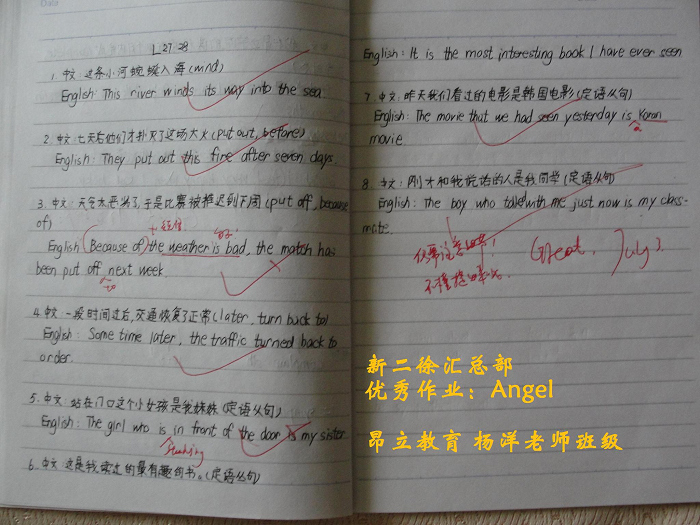 L 27-28
1. 中文: 这条小河蜿蜒入海 (wind)
English: This river winds its way into the sea.
2. 中文: 七天后他们才扑灭了这场大火 (put out, before)
English: They put out this fire after seven days.
3. 中文: 天气太恶劣了,于是比赛被推迟到下周 (put off, because
of)
English: (Because of) the weather is bad, the match has
been put off next week.
to
4. 中文: 一段时间过后,交通恢复了正常 (later, turn back to)
English: Some time later, the traffic turned back to
order.
5. 中文: 站在门口这个小女孩是我妹妹 (定语从句)
English: The girl who is in front of the door is my sister.
standing
6. 中文: 这是我读过的最有趣的书。(定语从句)
English: It is the most interesting book I have ever seen
7. 中文: 昨天我们看过的电影是韩国电影 (定语从句)
English: The movie that we had seen yesterday is Koran
a
movie.
8. 中文: 刚才和我说话的人是我同学 (定语从句)
English: The boy who talked with me just now is my class-
mate.
Great, July 3.
新二徐汇总部
优秀作业:Angel
昂立教育 杨洋老师班级